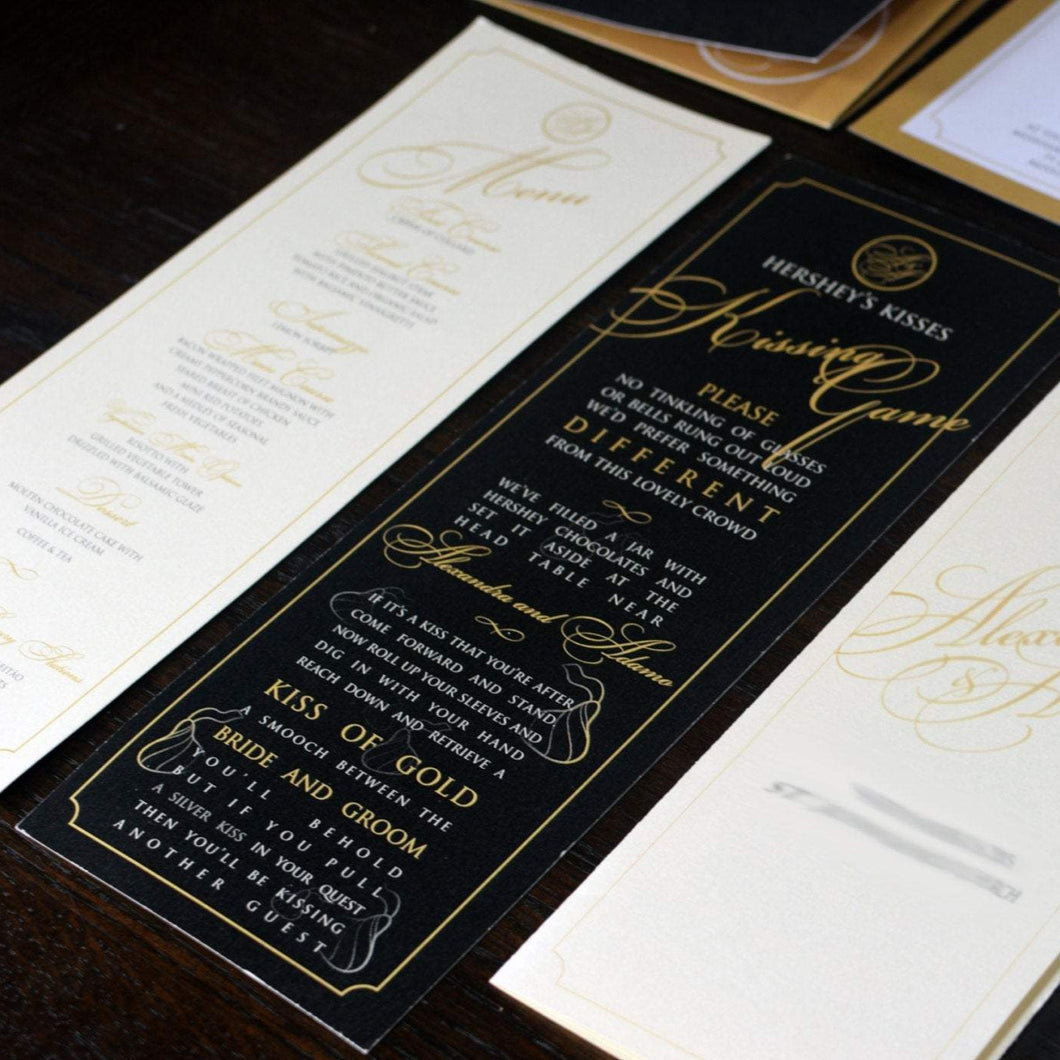 Menu
First Course
Second Course
GRILLED
WITH PIMENTO BUTTER SAUCE
TOMATO RICE AND ORGANIC SALAD
WITH BALSAMIC VINAIGRETTE
LEMON SORBET
Main Course
BACON WRAPPED FILET MIGNON WITH
CREAMY PEPPERCORN BRANDY SAUCE
SEARED BREAST OF CHICKEN
MINI RED POTATOES
AND A MEDLEY OF SEASONAL
FRESH VEGETABLES
RISOTTO WITH
GRILLED VEGETABLE TOWER
DRIZZLED WITH BALSAMIC GLAZE
Dessert
MOLTEN CHOCOLATE CAKE WITH
VANILLA ICE CREAM
COFFEE & TEA
HERSHEY'S KISSES
Kissing
Game
PLEASE
NO TINKLING OF GLASSES
OR BELLS RUNG OUT LOUD
WE'D PREFER SOMETHING
DIFFERENT
FROM THIS LOVELY CROWD
WE'VE FILLED A JAR WITH
HERSHEY CHOCOLATES AND
SET IT ASIDE AT THE
HEAD TABLE NEAR
Alexandra and Adamo
IF IT'S A KISS THAT YOU'RE AFTER
COME FORWARD AND STAND
NOW ROLL UP YOUR SLEEVES AND
DIG IN WITH YOUR HAND
REACH DOWN AND RETRIEVE A
KISS OF GOLD
A SMOOCH BETWEEN THE
BRIDE AND GROOM
YOU'LL BEHOLD
BUT IF YOU PULL
A SILVER KISS IN YOUR QUEST
THEN YOU'LL BE KISSING
ANOTHER GUEST
Alex
& A
ST.